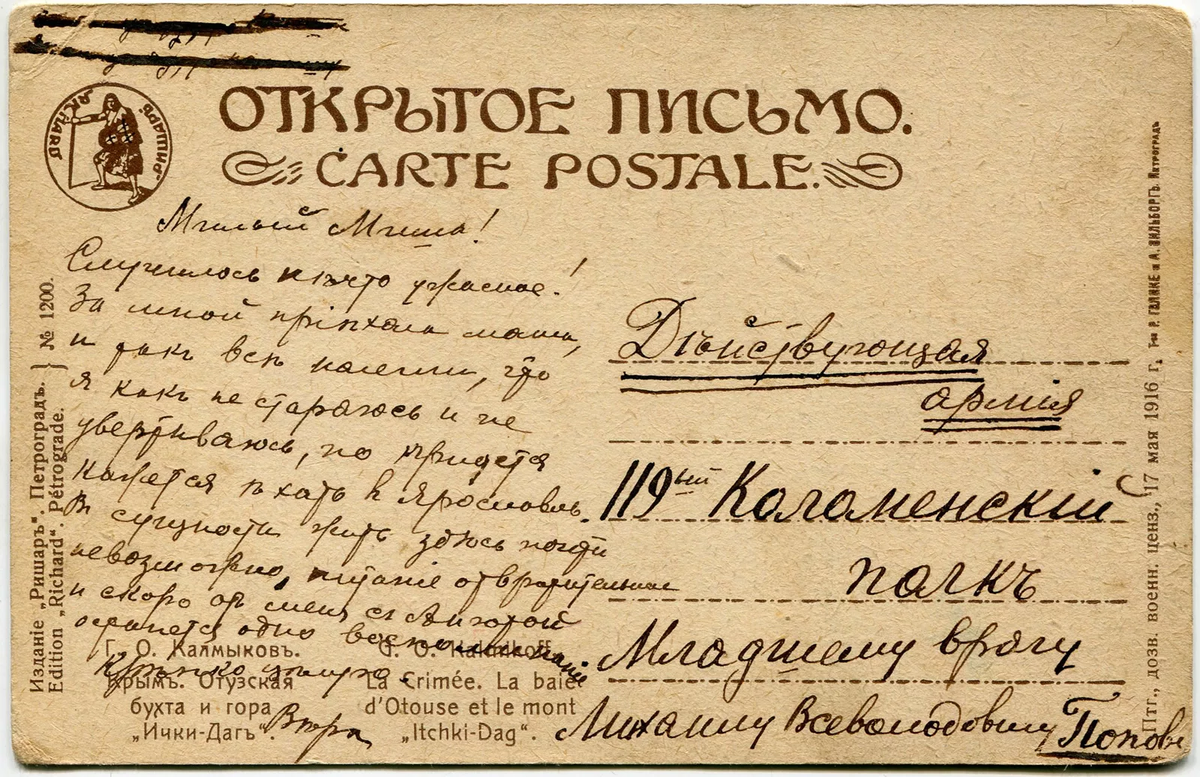 РИШАРЪ
RICHARD
ОТКРЫТОЕ ПИСЬМО.
CARTE POSTALE.
Милый Миша!
Случилось нѣчто ужасное!
За мной пріѣхала мама,
и такъ всѣ налегли, что
я какъ не стараюсь и не
увертываюсь, но придется
кажется ѣхать в Ярославль.
В сущности жить здѣсь почти
невозможно, питаніе отвратительное
и скоро от меня с
останется одно воспоминаніе
Крѣпко цѣлую.
Вѣра
Дѣйствующая
армія
119ый Коломенскій
полкъ
Младшему врачу
Михаилу Всеволодовичу
Попову
Г. О. Калмыковъ.
Крымъ. Отузская
бухта и гора
„Ички-Дагъ".
G. O. Kalmikoff.
La Crimée. La baie
d'Otouse et le mont
„Itchki-Dag".
Изданіе „Ришаръ". Петроградъ.
Edition „Richard". Pétrograde.
№ 1200.
Птг., дозв. военн. ценз., 17 мая 1916 г. Т-во Р. ГОЛИКЕ и А. ВИЛЬБОРГЪ. ПЕТРОГРАДЪ